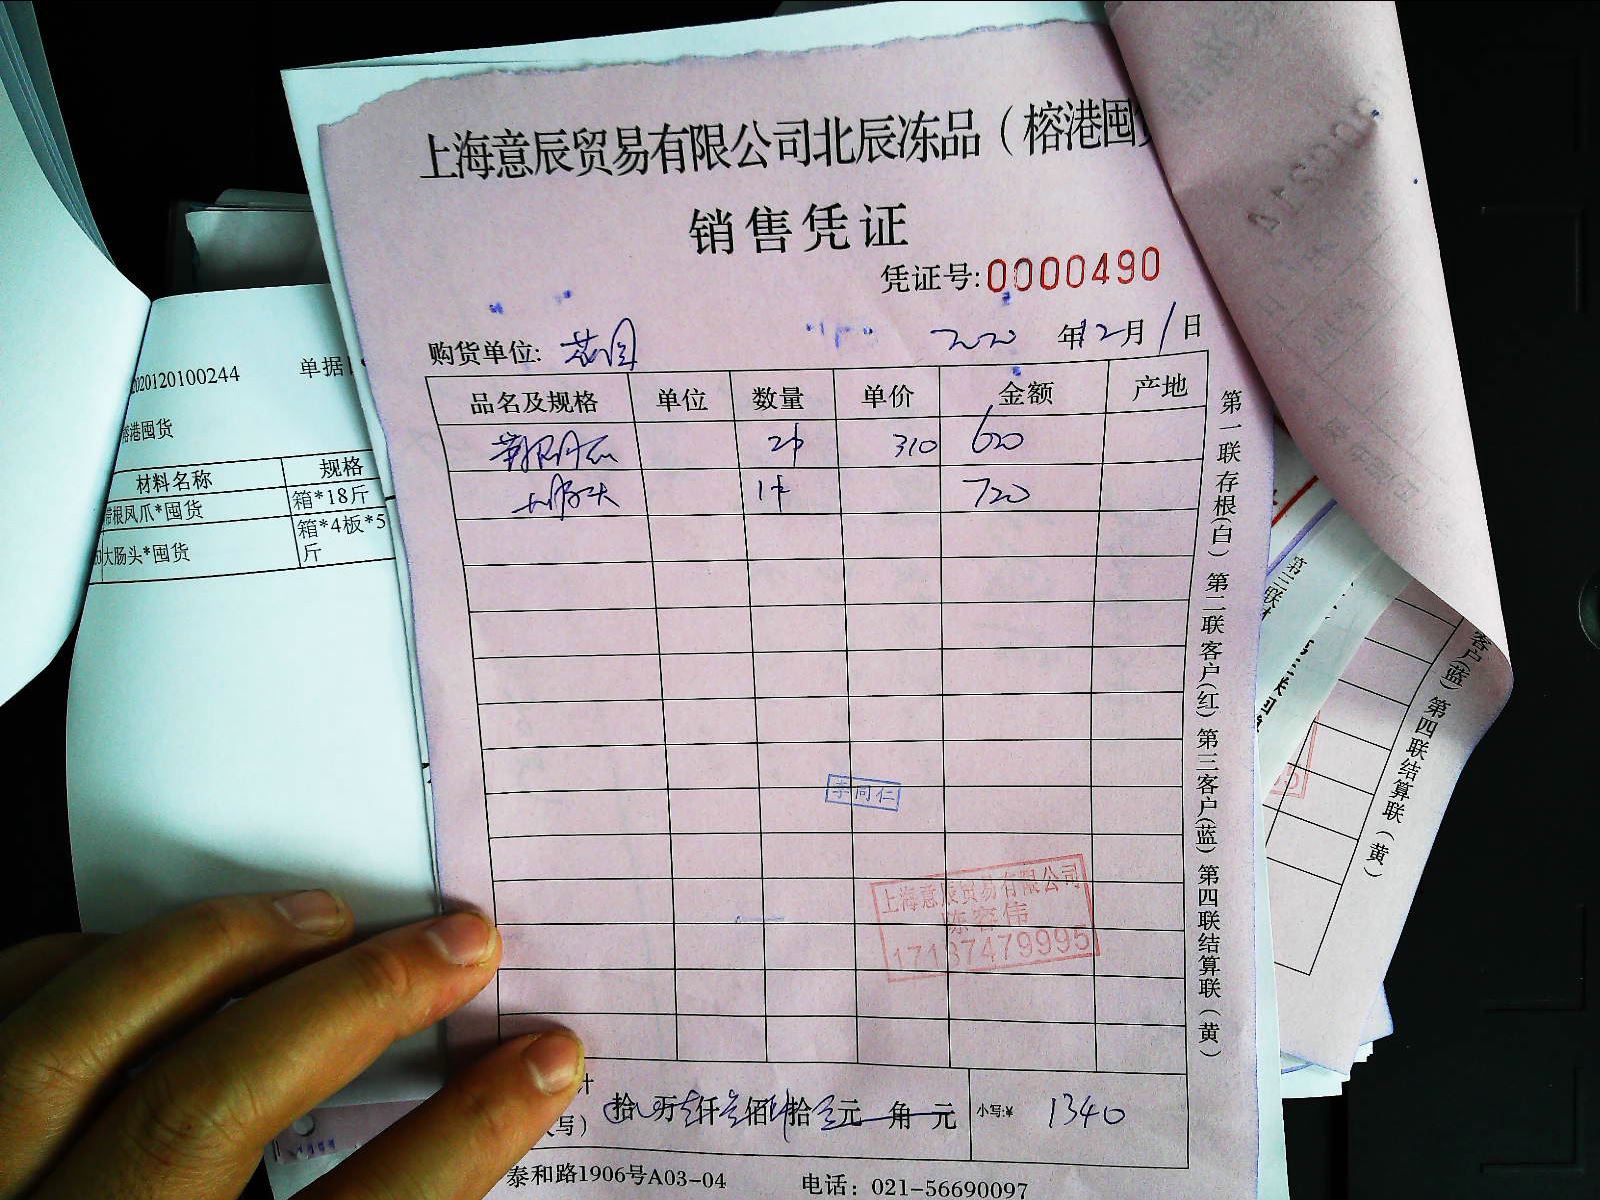 上海意辰贸易有限公司北辰冻品（榕港囤
销售凭证
凭证号:0000490
购货单位:
2020 年12月1日
品名及规格 单位 数量 单价 金额 产地
2件 310 620
大肠头 1件 720
李同仁
上海意辰贸易有限公司
17137479995
拾 万 仟 佰 拾 元 角 元 小写:¥ 1340
泰和路1906号A03-04 电话：021-56690097
第一联存根(白) 第二联客户(红) 第三客户(蓝) 第四联结算联(黄)
2020120100244 单据
榕港囤货
材料名称 规格
带根凤爪*囤货 箱*18斤
大肠头*囤货 箱*4板*5斤
第二联
客户(蓝) 第四联结算联(黄)